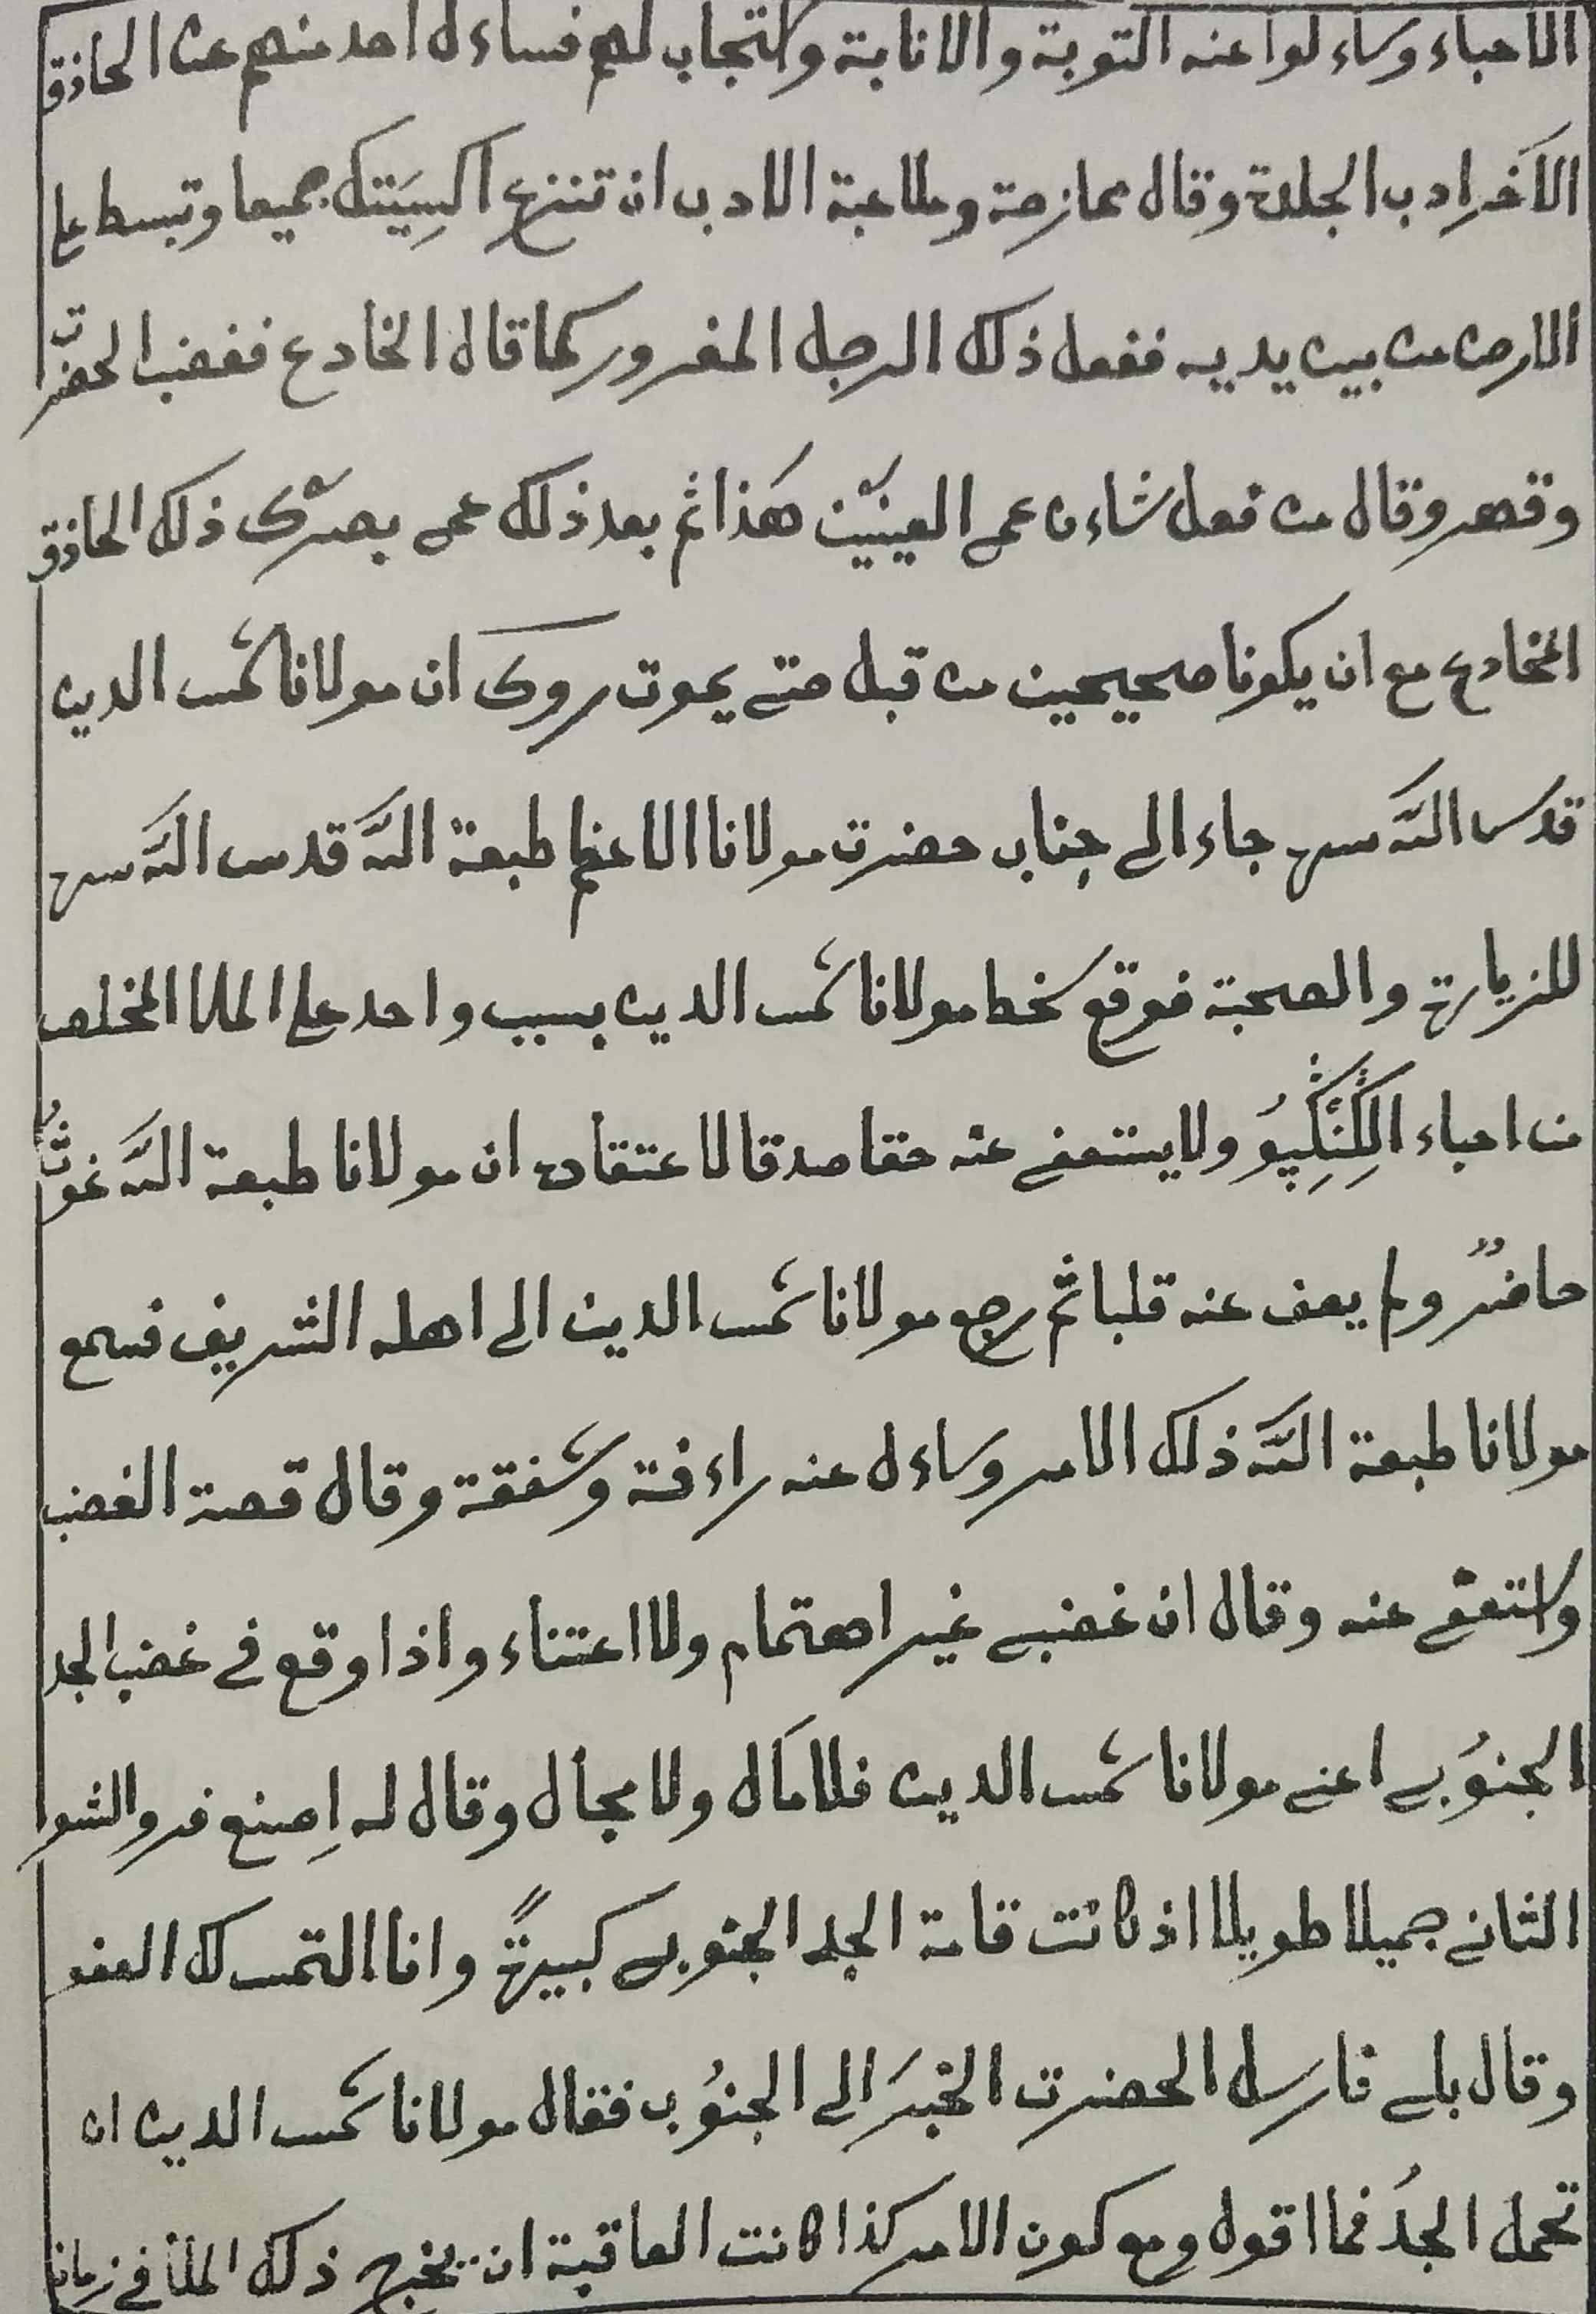 الاحباء وساءلوا عنه التوبة والانابة واستجاب لهم فساءل احد منهم عن الحاذق
الآخر ادب الجلدة وقال ممازحة وملاعبة الادب ان تنزع اكسِيَتك جميعا وتبسط على
الارض من بين يديه ففعل ذلك الرجل المغرور كما قال الخادع فغضب الحضرت
وقهر وقال من فعل شاءن عمى العينَيْن هَذا ثم بعد ذلك عمى بصرى ذلك الحاذق
المخادع مع ان يكونا صحيحين من قبل حتى يموت روى ان مولانا شمس الدين
قدس الله سره جاء الى جناب حضرت مولانا الاعظم طبعة الله قدس الله سره
للزيارة والصحبة فوقع سخط مولانا شمس الدين بسبب واحد على الملا المخلص
من احباء ولا يستعفى عنه حقا صدقا لاعتقاده ان مولانا طبعة الله غوثٌ
حاضرٌ ولم يعف عنه قلبا ثم رجع مولانا شمس الدين الى اهله الشريف فسمع
مولانا طبعة الله ذلك الامر وساءل عنه راءفة وشفقة وقال قصة الغضب
واستعفى عنه وقال ان غضبى غير اهتمام ولا اعتناء واذا وقع فى غضب الجد
الجنوُبى اعنى مولانا شمس الدين فلا مآل ولا مجال وقال له اِصنع فرو الشو
الثانى جميلا طويلا اذ كانت قامة الجد الجنوبى كبيرةً وانا التمس لك العفو
وقال بلى فارسل الحضرت الخبَر الى الجنوُب فقال مولانا شمس الدين ان
تحمل الجدُ فما اقول ومع كون الامر كذا كانت العاقبة ان يخرج ذلك الملأ فى زمانا